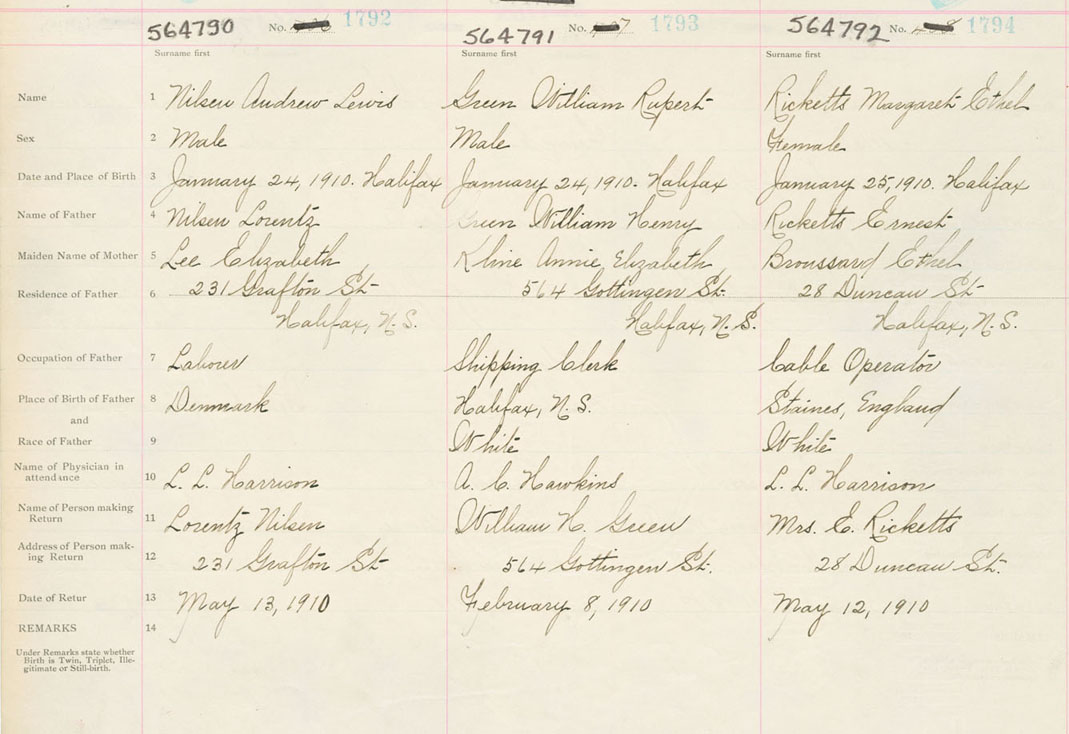 564790 No. 1792 564791 No. 1793 564792 No. 1794
Surname first Surname first Surname first
Name 1 Nilsen Andrew Lewis Green William Rupert Ricketts Margaret Ethel
Sex 2 Male Male Female
Date and Place of Birth 3 January 24, 1910. Halifax January 24, 1910. Halifax January 25, 1910. Halifax
Name of Father 4 Nilsen Lorentz Green William Henry Ricketts Ernest
Maiden Name of Mother 5 Lee Elizabeth Kline Annie Elizabeth Broussard Ethel
Residence of Father 6 231 Grafton St 564 Gottingen St. 28 Duncan St
Halifax, N.S. Halifax, N.S. Halifax, N.S.
Occupation of Father 7 Laborer Shipping Clerk Cable Operator
Place of Birth of Father 8 Denmark Halifax, N.S. Staines, England
and
Race of Father 9 White White
Name of Physician in
attendance 10 L. L. Harrison A. C. Hawkins L. L. Harrison
Name of Person making
Return 11 Lorentz Nilsen William H. Green Mrs. E. Ricketts
Address of Person mak-
ing Return 12 231 Grafton St 564 Gottingen St. 28 Duncan St.
Date of Retur 13 May 13, 1910 February 8, 1910 May 12, 1910
REMARKS 14
Under Remarks state whether
Birth is Twin, Triplet, Ille-
gitimate or Still-birth.